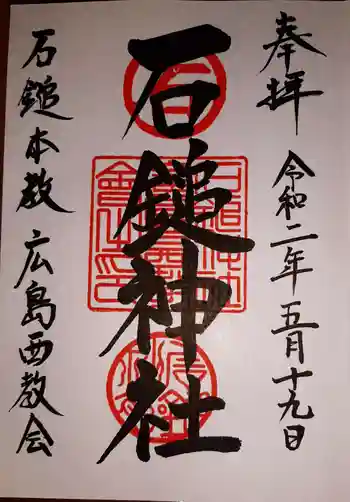 奉拝
令和二年五月十九日
石鎚神社
石鎚本教 広島西教会